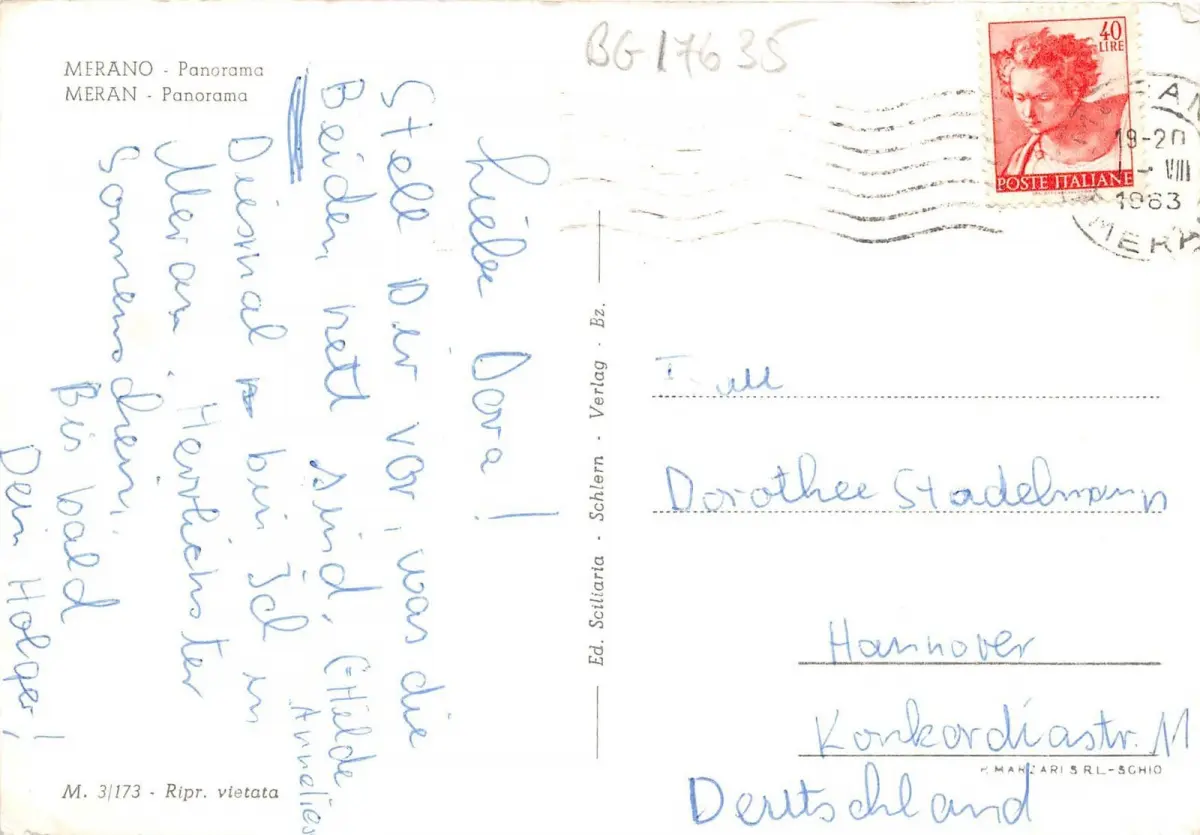 MERANO - Panorama
MERAN - Panorama
BG17635
40
LIRE
POSTE ITALIANE
19-20
VIII
1963
MERA
Liebe Dora!
Stell Dir vor, was die
Beiden net sind. (=Hilde
Annelies
Diesmal bin Ich in
Meran. Herrlichster
Sonnenschein.
Bis bald
Dein Holger!
Ed. Sciliaria - Schlern - Verlag · Bz.
Dorothee Stadelmann
Hannover
Konkordiastr. 11
Deutschland
MANZARI S R.L.-SCHIO
M. 3/173 - Ripr. vietata